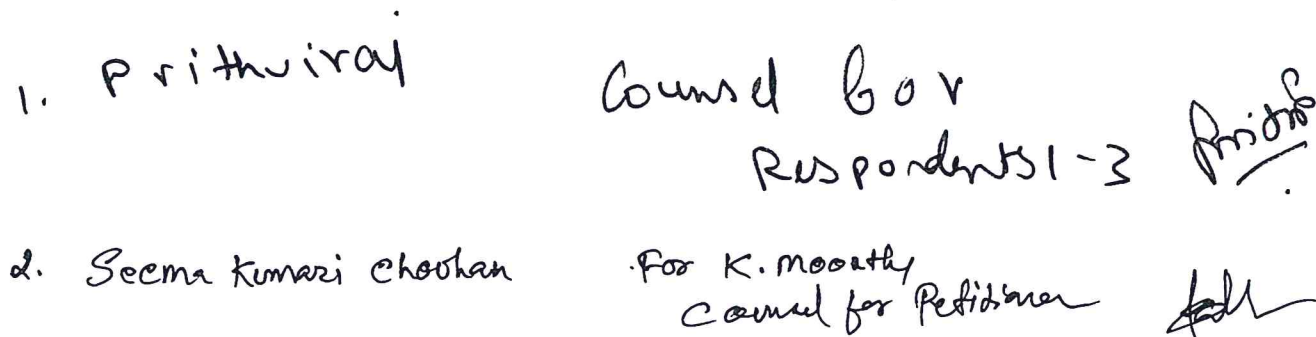 1. Prithviraj Counsel for
Respondents 1-3
2. Seema Kumari Chouhan For K. Moorthy
Counsel for Petitioner